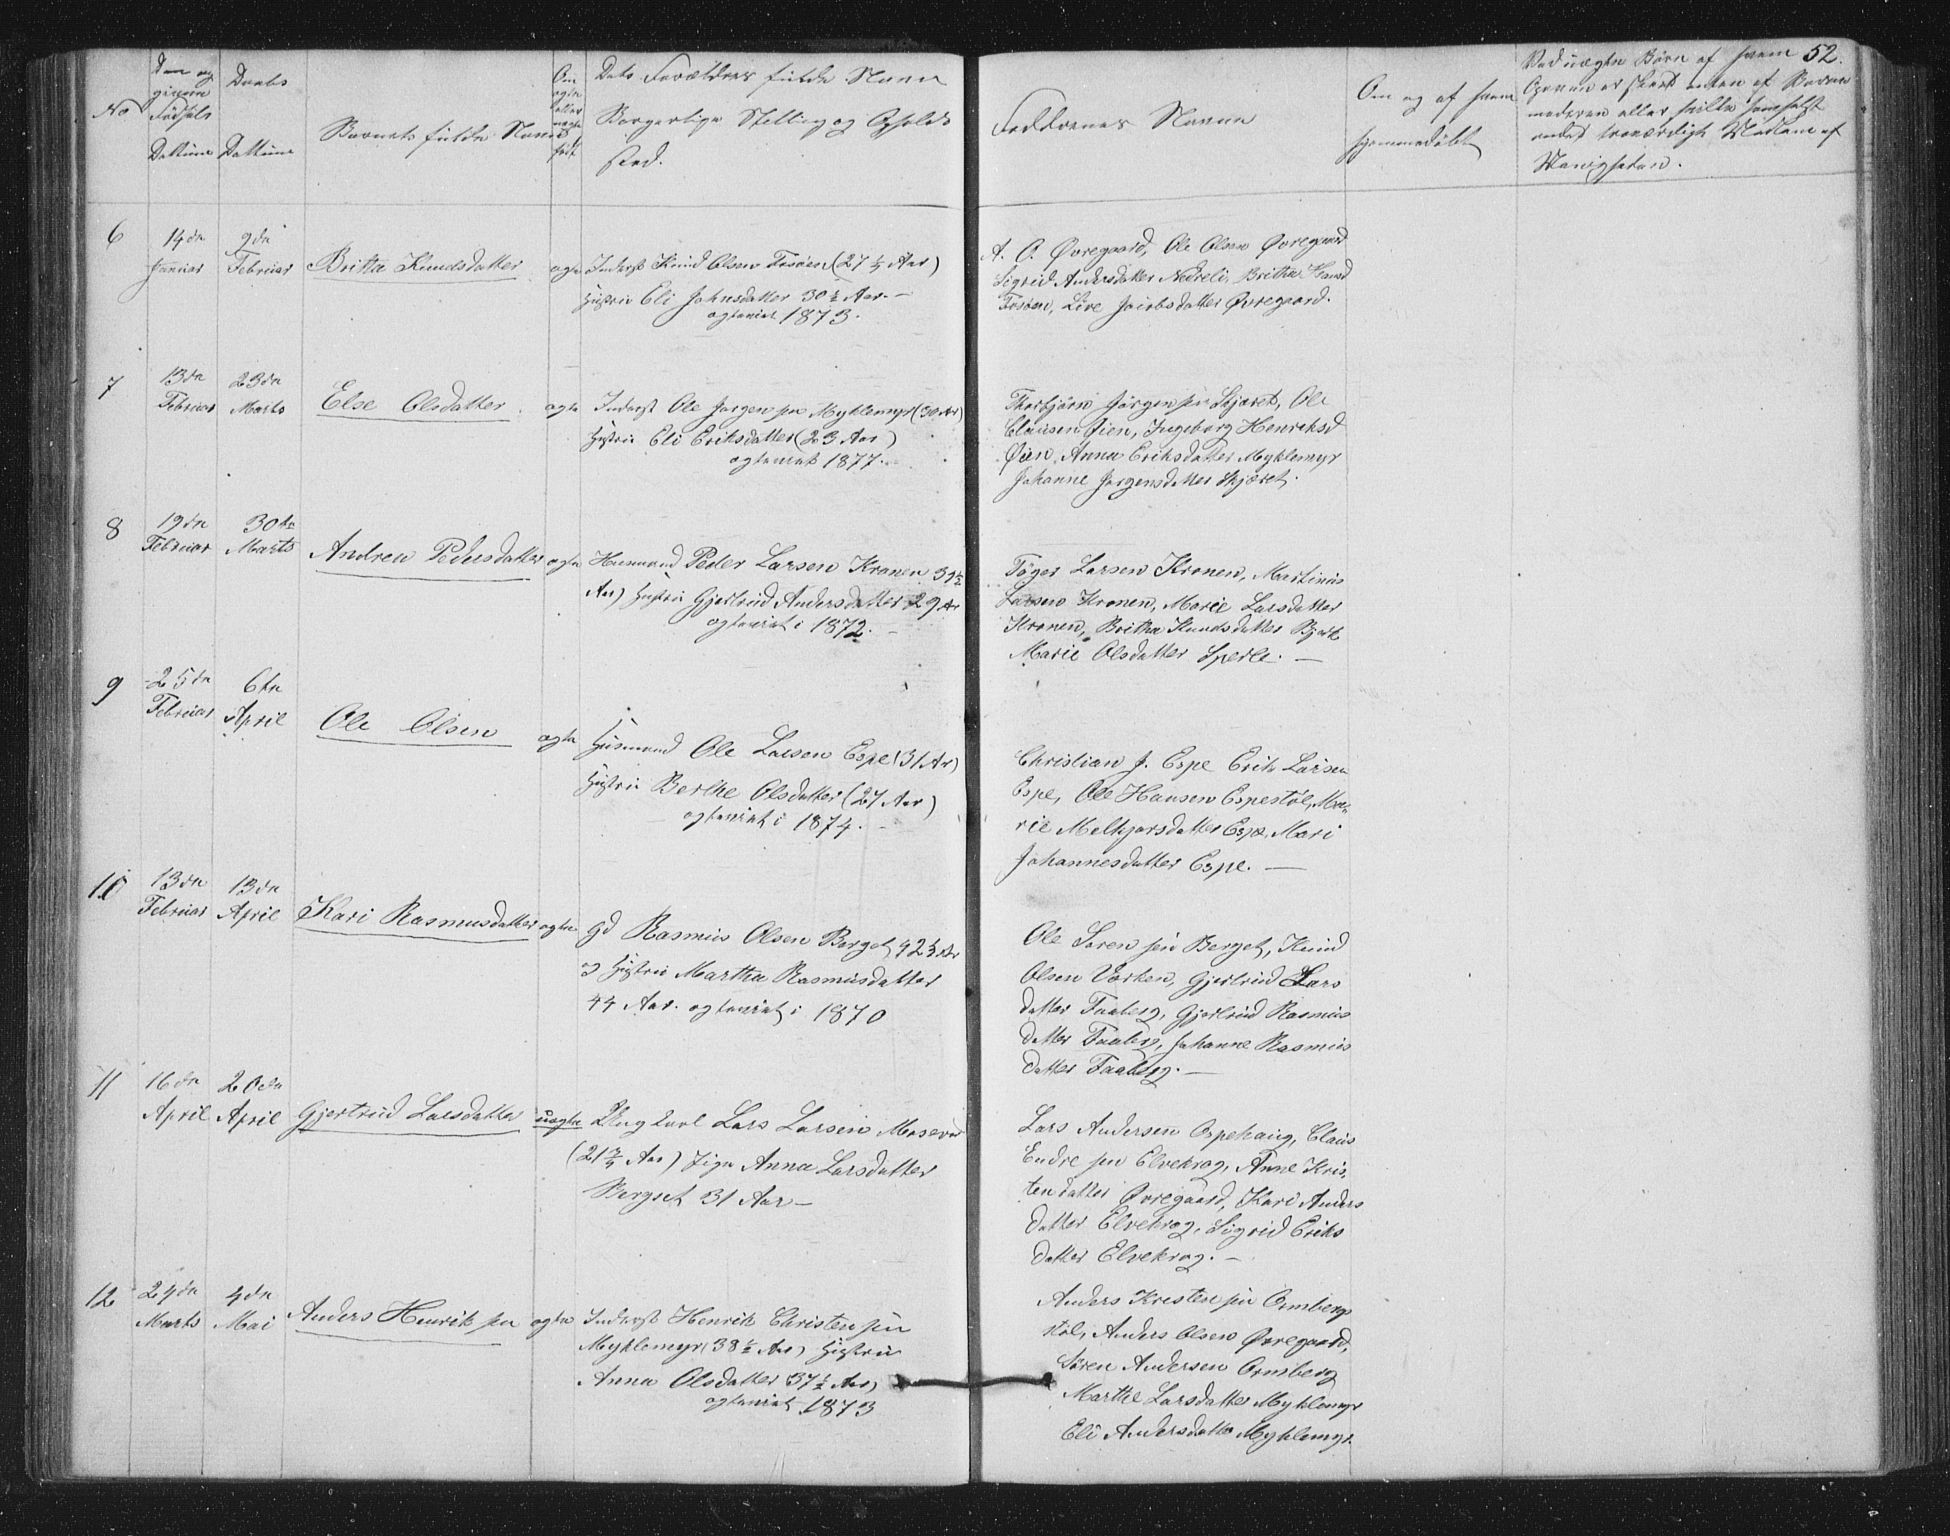 52.
No
Den og
givne
Fødsels
Dattum
Daabs
Dattum
Barnets fulde Navn
Om
ægte
eller
uægte
født
Dets Forældres fulde Navn
Borgerlige Stilling og Opholds
sted.
Faddernes Navne
Om og af hvem
hjemmedøbt
Ved uægte Børn af hvem
Opgaven er skeet enten af Barne
moderen eller hvilke somhelst
andet troværdigt Medlem af
Menigheden.
6
14de
Januar
9de
Februar
Britta Knudsdatter
ægte
Inderst Knud Olsen Fosøen (27 1/4 Aar)
Hustru Eli Johnsdatter 30 1/2 Aar. —
ægteviet 1873.
A. O. Øvregaard, Ole Olsen Øvregaard
Sigrid Andersdatter Nedreli, Britha Hansd
Fosøen, Live Jacobsdatter Øvregaard.
7
13de
Februar
23de
Marts
Else Olsdatter
ægte
Inderst Ole Jørgen sen Myklemyr (30 Aar)
Hustru Eli Eriksdatter (23 Aar)
ægteviet 1877.
Thorbjørn Jørgen sen Skjæret, Ole
Clausen Øien, Ingeborg Henriksd
Øien, Anna Eriksdatter Myklemyr
Johanne Jørgensdatter Skjæret.
8
19de
Februar
30te
Marts
Andrea Pedersdatter
ægte
Husmand Peder Larsen Kronen 31 1/2
Aar) Hustru Gjertrud Andersdatter 29 Ar
ægteviet i 1872. —
Tøger Larsen Kronen, Martinus
Larsen Kronen, Marie Larsdatter
Kronen, Britha Knudsdatter Bjørk
Marie Olsdatter Sperle. —
9
25de
Februar
6te
April
Ole Olsen
ægte
Husmand Ole Larsen Espe (31 Ar)
Hustru Berthe Olsdatter (27 Aar)
ægteviet i 1874. —
Christian J. Espe Erik Larsen
Espe, Ole Hansen Espestøl, Ma-
rie Melkjorsdatter Espe, Mari
Johannesdatter Espe. —
10
13de
Februar
13de
April
Kari Rasmusdatter
ægte
Gd Rasmus Olsen Berget 42 1/2 Ar
og Hustru Martha Rasmusdatter
44 Aar. ægteviet i 1870
Ole Søren sen Berget, Knud
Olsen Vorken, Gjertrud Lars
datter Faaberg, Gjertrud Rasmus
datter Faaberg, Johanne Rasmus
datter Faaberg. —
11
16de
April
20de
April
Gjertrud Larsdatter
uægte
Ungkarl Lars Larsen Mosevad
(21 3/4 Aar) Pige Anna Larsdatter
Bergset 31 Aar —
Lars Andersen Espehaug, Claus
Endre sen Elvekrog, Anne Kris,
ten datter Øvregaard, Kari Anders
datter Elvekrog, Sigrid Eriks
datter Elvekrog. —
12
24de
Marts
4de
Mai
Anders Henrik sen
ægte
Inderst Henrik Christen sen
Myklemyr (38 1/2 Aar) Hustru
Anna Olsdatter 37 1/2 Aar)
ægteviet 1873
Anders Kristen sen Ormbergs
støl, Anders Olsen Øvregaard,
Søren Andersen Ormberg
Marthe Larsdatter Myklemyr
Eli Andersdatter Myklemyr.